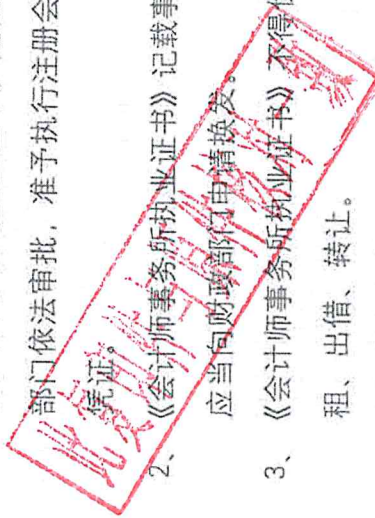 部门依法审批，准予执行注册会
凭证。
2、《会计师事务所执业证书》记载事
应当向财政部门申请换发。
3、《会计师事务所执业证书》不得
租、出借、转让。